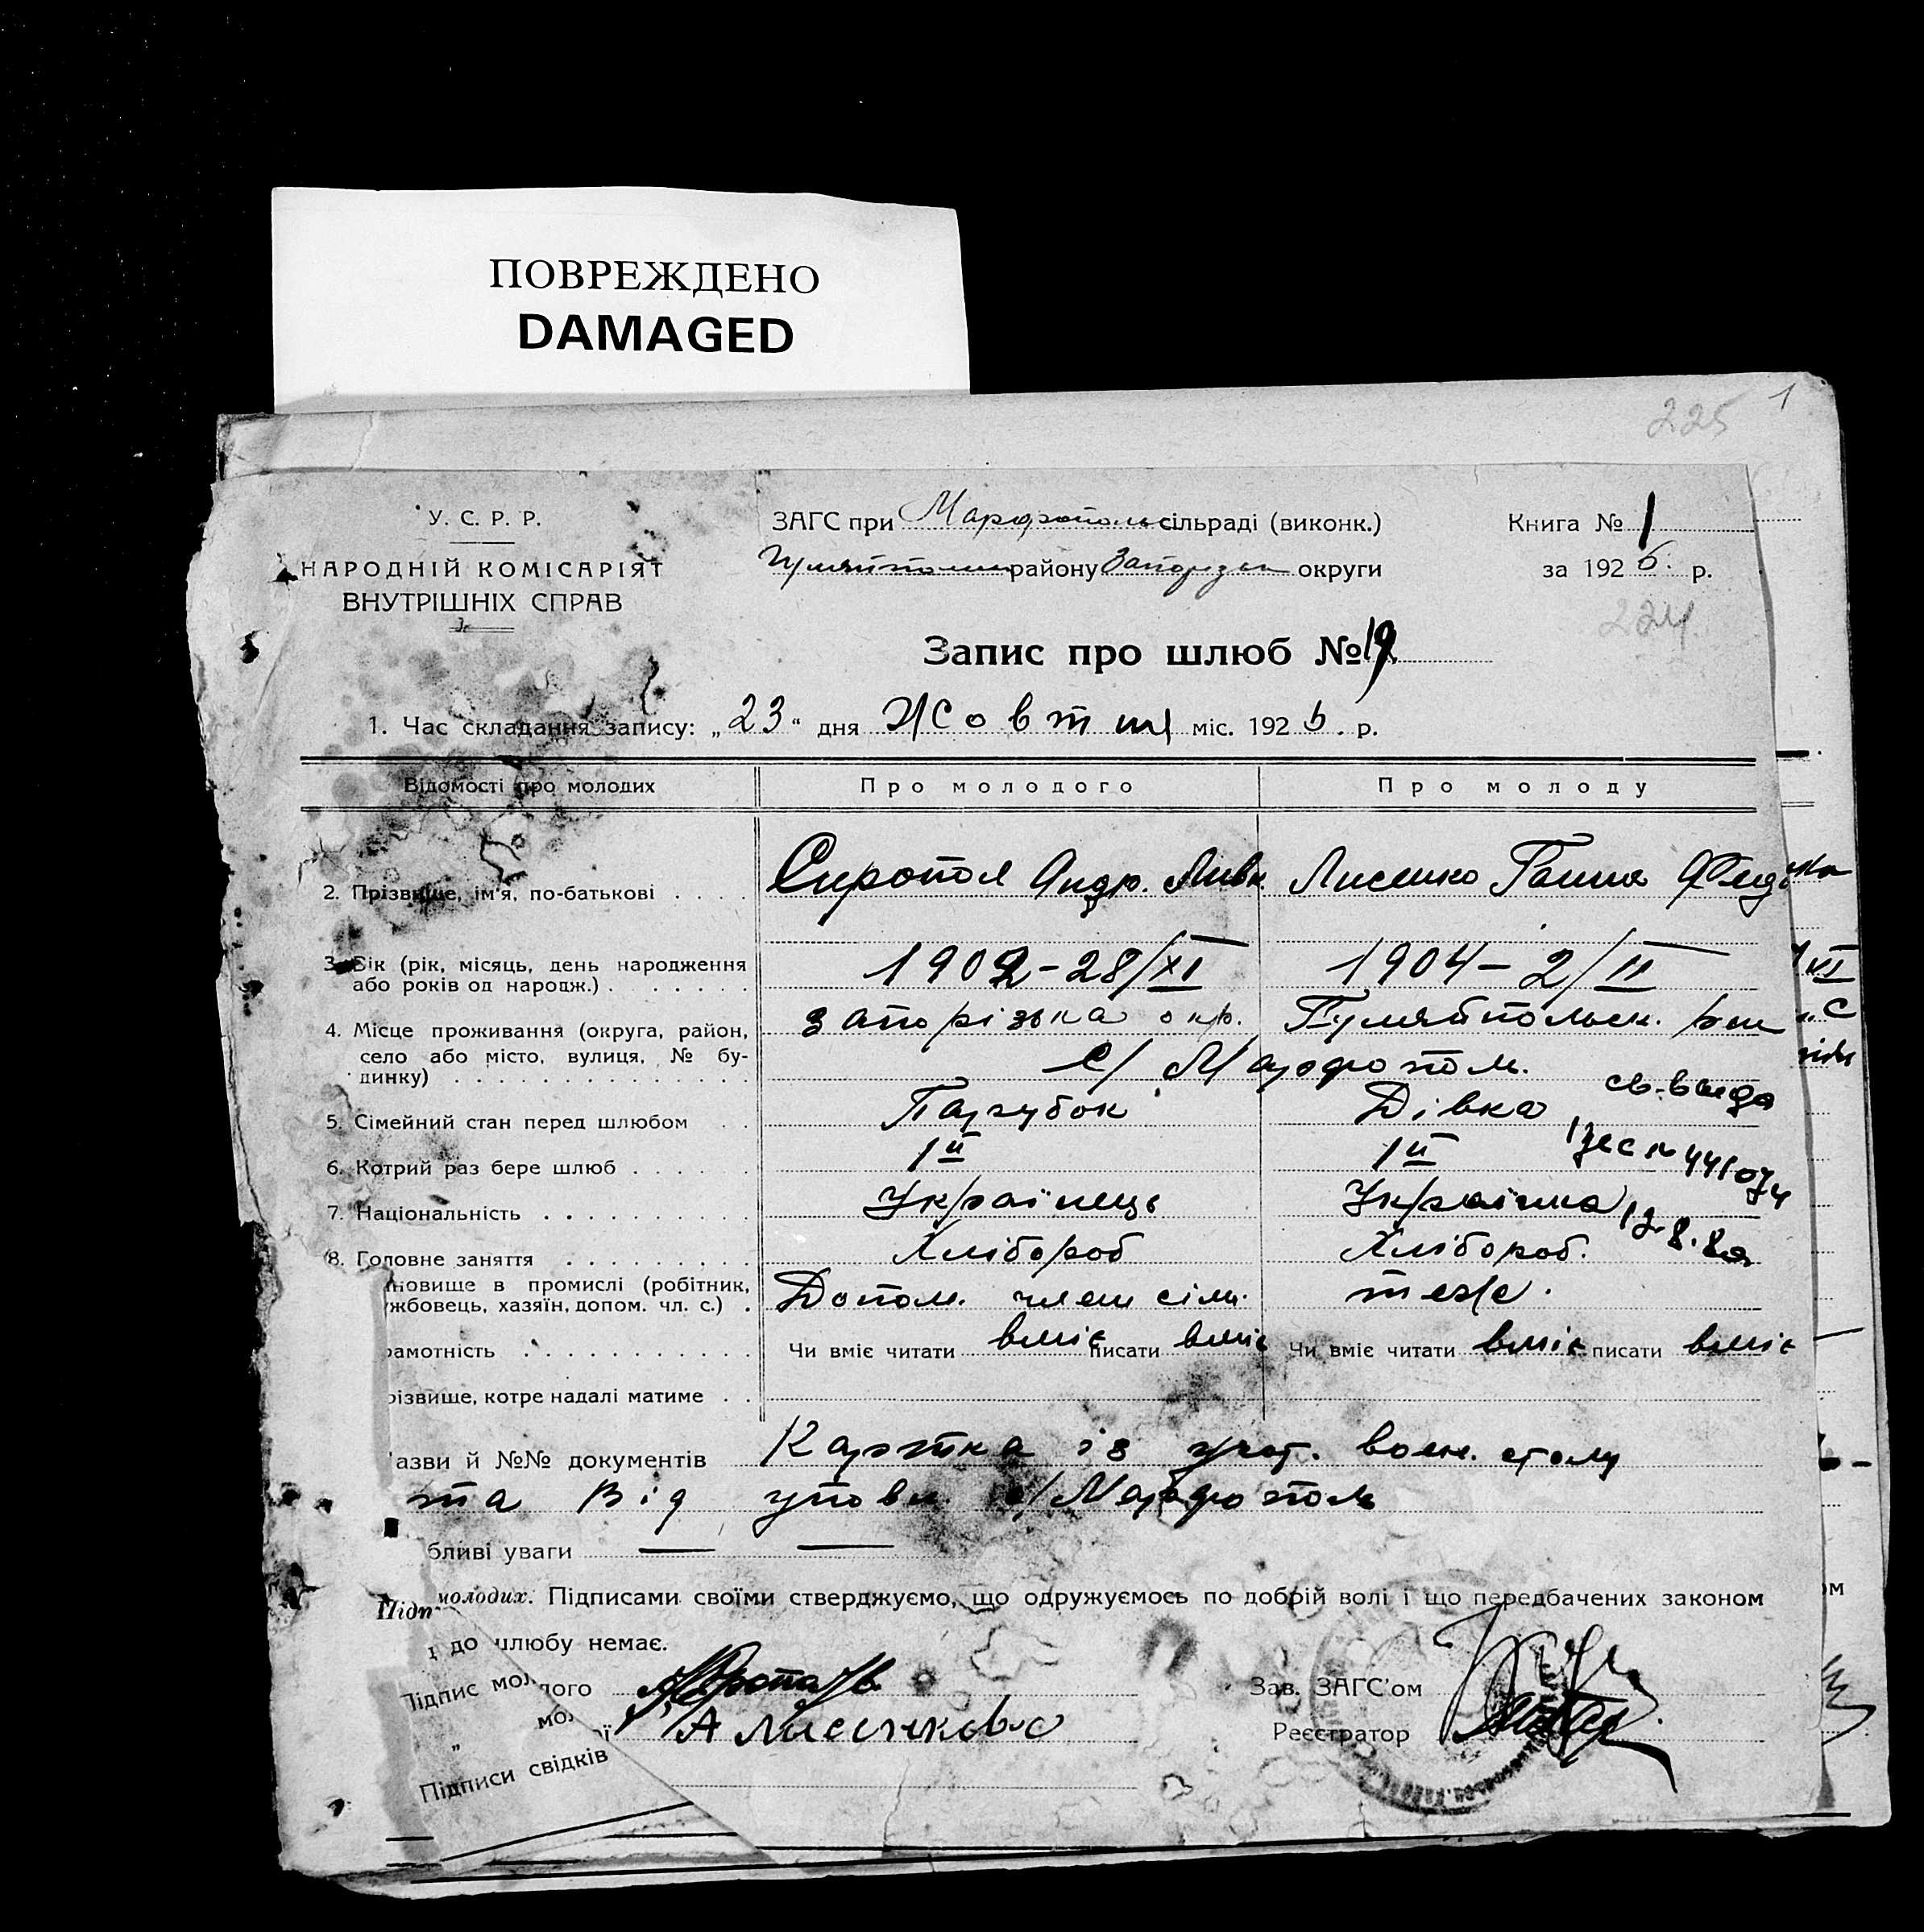 ПОВРЕЖДЕНО
DAMAGED
1
225
У. С. Р. Р.
НАРОДНІЙ КОМІСАРІЯТ
ВНУТРІШНІХ СПРАВ
ЗАГС при Марфопольс сільраді (виконк.)
району Запорізьк округи
Книга № 1
за 1926 р.
224
Запис про шлюб № 19
1. Час складання запису: „23“ дня Жовтня міс. 1926. р.
Відомості про молодих
Про молодого
Про молоду
2. Прізвище, ім'я, по-батькові . . . .
Сиропол Андр.
Лисенко Ганна
3. Вік (рік, місяць, день народження
або років од народж.) . . . . . .
1902-28/XI
1904-2/II
4. Місце проживання (округа, район,
село або місто, вулиця, № бу-
динку) . . . . . . . . . . . . . .
Запорізька окр. Гуляйпольськ. рай
с/ Марфополь.
5. Сімейний стан перед шлюбом . .
Парубок
Дівка
св-во
6. Котрий раз бере шлюб . . . . .
1й
1й
441074
7. Національність . . . . . . . . .
Українець
Українка
8. Головне заняття . . . . . . . . .
Хлібороб
Хлібороб.
новище в промислі (робітник,
жбовець, хазяїн, допом. чл. с.) .
Допом. член сім.
теж.
рамотність . . . . . . . . . . .
Чи вміє читати вміє писати вміє
Чи вміє читати вміє писати вміє
різвище, котре надалі матиме . .
азви й №№ документів Картка із учот. воен. столу
та від уповн. с/Марфополь
бливі уваги — —
Підп молодих. Підписами своїми стверджуємо, що одружуємось по добрій волі і що передбачених законом
до шлюбу немає.
Підпис мол лого
Зав. ЗАГС'ом
„ мо ї А Лисенкова
Реєстратор
Підписи свідків